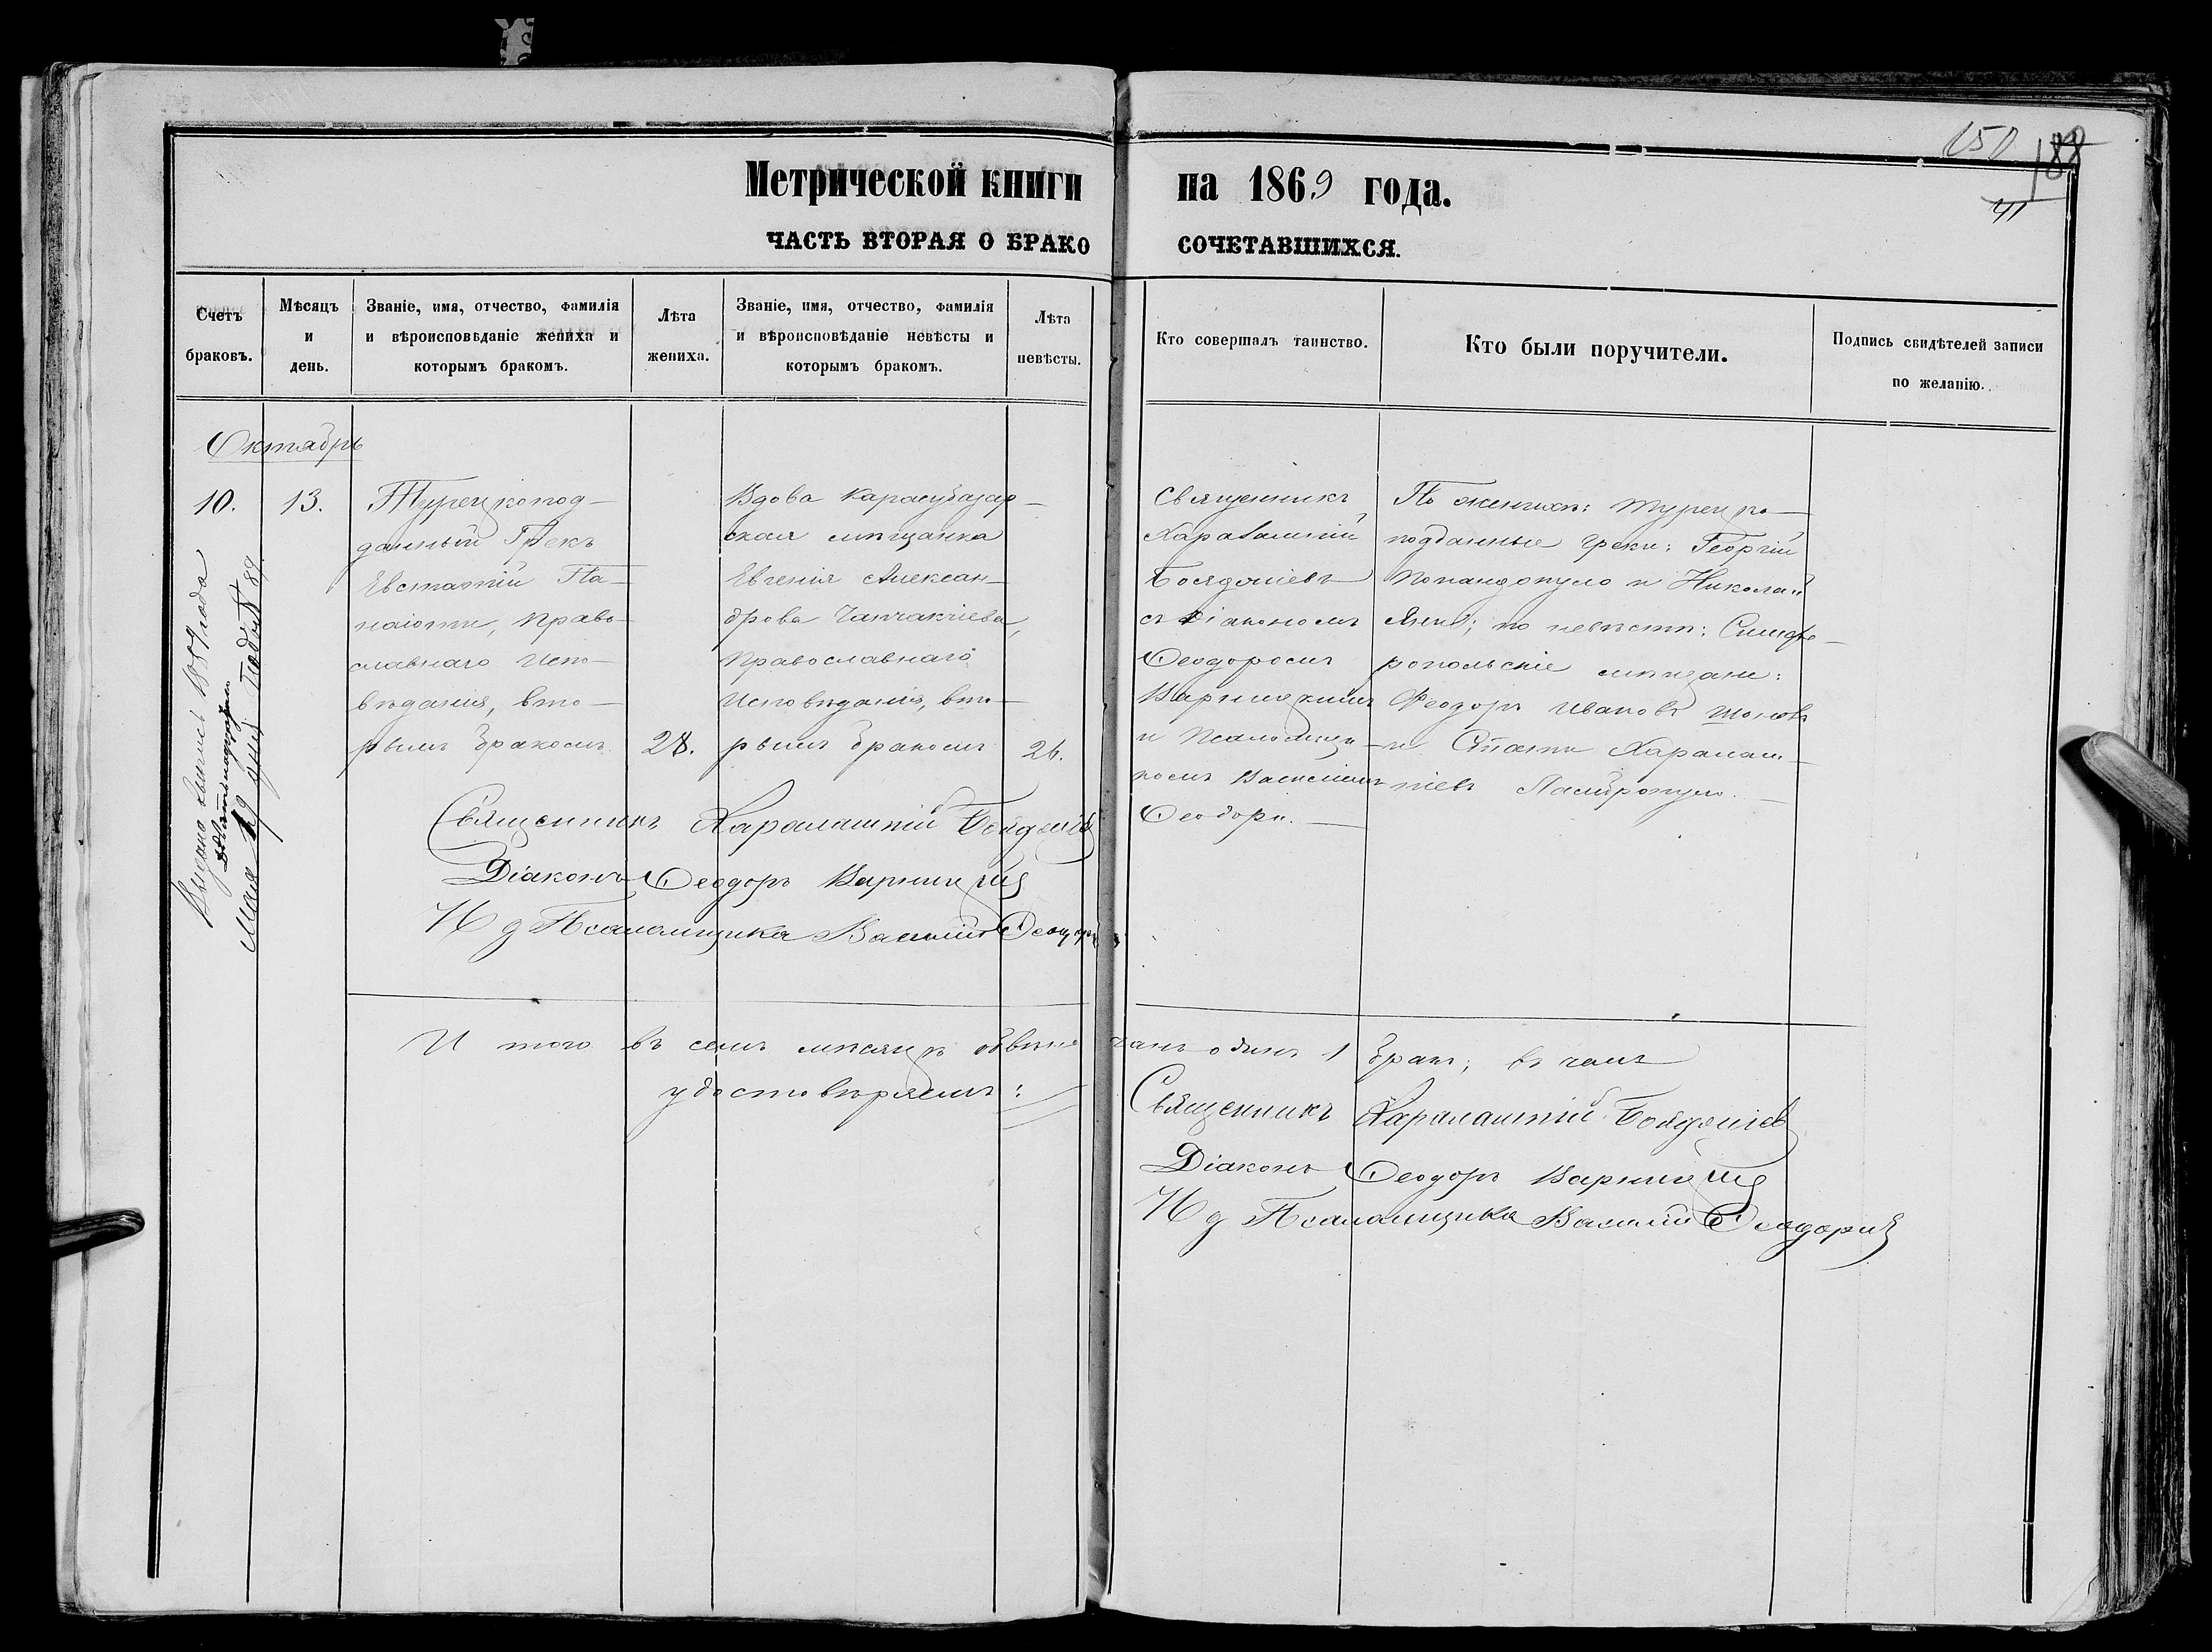 150 188
41
Метрической книги на 1869 года.
ЧАСТЬ ВТОРАЯ О БРАКОСОЧЕТАВШИХСЯ.
Счетъ браковъ.
Мѣсяцъ и день.
Званіе, имя, отчество, фамилія
и вѣроисповѣданіе жениха и
которымъ бракомъ.
Лѣта
жениха.
Званіе, имя, отчество, фамилія
и вѣроисповѣданіе невѣсты и
которымъ бракомъ.
Лѣта
невѣсты.
Кто совершалъ таинство.
Кто были поручители.
Подпись свидѣтелей записи
по желанію.
Октябрь
10.
13.
Турецкопод-
данный Грекъ
Евстатій Па-
наіоти, право-
славнаго испо-
вѣданія, вто-
рымъ бракомъ
28.
Вдова Карасубазар-
ская мѣщанка
Евгенія Алексан-
дрова Чапчакчіева,
православнаго
исповѣданія, вто-
рымъ бракомъ
26.
Священникъ
Харалампій
Бояджіевъ
съ діакономъ
Ѳеодоромъ
Варницкимъ
и псаломщи-
комъ Василіемъ
Ѳеодори.
По женихѣ: турецко-
подданные греки: Георгій
Попандопуло и Николай
по невѣстѣ: Симфе-
ропольскіе мѣщане:
Ѳеодоръ Ивановъ
и Спати Харалам-
піевъ
Выдана выпись 1889 года
Мая 19
Священникъ Харалампій Бояджіевъ
Діаконъ Ѳеодоръ Варницкій
И д Псаломщика Василій Ѳеодори
Итого въ семъ мѣсяцѣ обвѣнчанъ одинъ 1 бракъ; въ чемъ
удостовѣряемъ:
Священникъ Харалампій Бояджіевъ
Діаконъ Ѳеодоръ Варницкій
И д Псаломщика Василій Ѳеодори